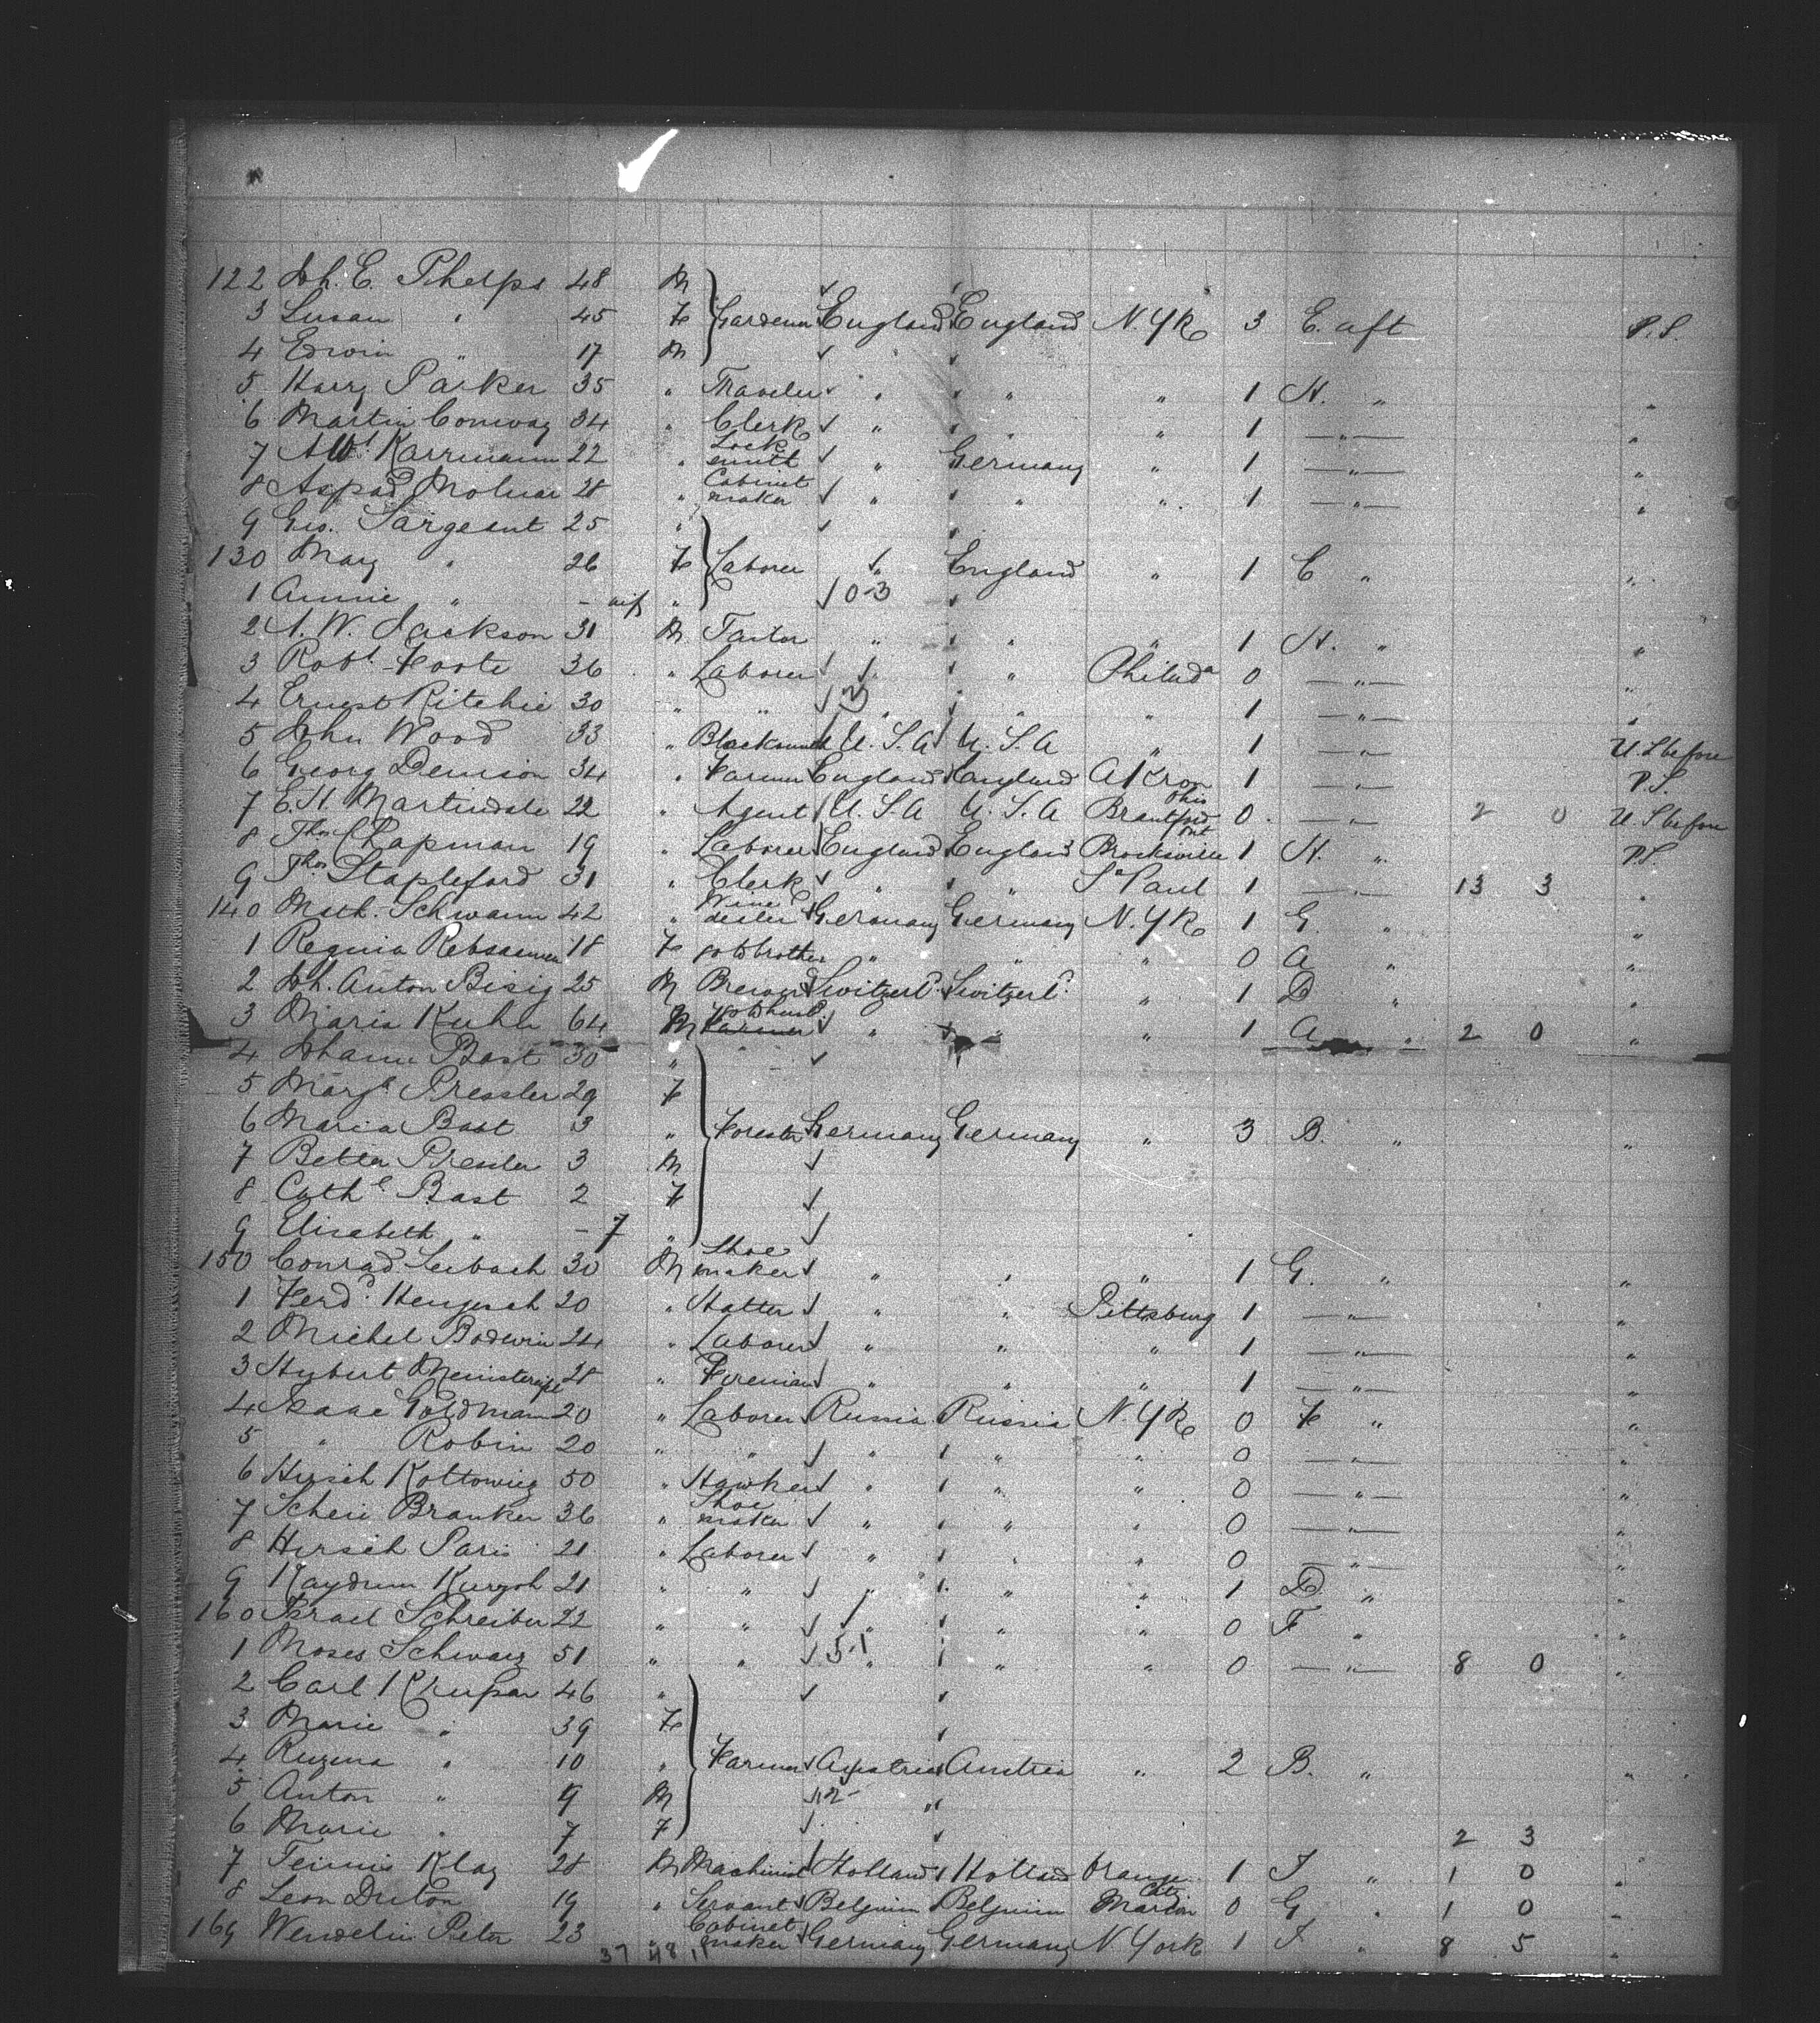 122 Joh. E. Phelps 48 M
3 Susan " 45 F Gardener England England N. Yk 3 E. aft P.S.
4 Edwin " 17 M
5 Harry Parker 35 " Traveler " " " 1 H. " "
6 Martin Conway 34 " Clerk " " " 1 —"— "
7 Alb.t Karrmann 22 " Lock smith " Germany " 1 —"— "
8 Aspad Molnar 28 " Cabinet maker " " " 1 —"— "
9 Geo. Sargeant 25 "
130 Mary " 26 F Laborer " England " 1 E " "
1 Annie " - inf "
0-3
2 A. W. Jackson 31 M Tailor " " " 1 H. " "
3 Robt. Foote 36 " Laborer " " Philada 0 —"— "
4 Ernest Ritchie 30 " " " " " 1 —"— "
5 John Wood 33 " Blacksmith U. S. A U. S. A " 1 —"— U.S before
6 Georg Denison 34 " Farmer England England Akron Ohio 1 —"— P.S.
7 E. H. Martindale 22 " Agent U. S. A U. S. A Brantford Ont 0 —"— 2 0 U S before
8 Thos Chapman 19 " Laborer England England Brocksville 1 H. " P.S.
9 Thos. Stapleford 31 " Clerk " " St Paul 1 —"— 13 3 "
140 Math. Schwann 42 " Wine dealer Germany Germany N. Yk 1 G. " "
1 Regina Rebsamen 18 F go to brother " " " 0 A " "
2 Joh. Anton Bisig 25 M Brewer Switzerld. Switzerld. " 1 D " "
3 Maria Kuhn 64 M go to husbd. Farmer " " " 1 A " 2 0 "
4 Johann Bast 30 "
5 Margt. Pressler 29 F
6 Maria Bast 3 " Forester Germany Germany " 3 B. " "
7 Pressler 3 M
8 Cathe Bast 2 F
9 Elisabeth " - 7 "
150 Conrad Leibach 30 M Shoe maker " " " 1 G. " "
1 Ferdd. Hengesch 20 " Hatter " " Pittsburg 1 —"— "
2 Michel Bodwin 24 " Laborer " " " 1 —"— "
3 Hubert 28 " Fireman " " " 1 —"— "
4 Isaac Goldmann 20 " Laborer Russia Russia N. Yk 0 F " "
5 " Robin 20 " " " " " 0 —"— "
6 Hirsch Kottowicz 50 " Hawker " " " 0 —"— "
7 Branker 36 " Shoe maker " " " 0 —"— "
8 Hirsch Paris 21 " Laborer " " " 0 —"— "
9 21 " " " " " 1 D. " "
160 Israel Schreiber 22 " " " " " 0 F " "
1 Moses Schwarz 51 " " 5-1 " " " 0 —"— 8 0 "
2 Carl Krupar 46 "
3 Marie " 39 F
4 Ruzena " 10 " Farmer Austria Austria " 2 B. " "
5 Anton " 9 M 12 "
6 Marie " 7 F 2 3
7 Teunis Klay 28 M Machinist Holland Holland Orange City 1 J " 1 0 "
8 Leon 19 " Servant Belgium Belgium Marion 0 G " 1 0 "
169 Wendelin Peter 23 " Cabinet maker Germany Germany N. York 1 J " 8 5 "
37 48 11